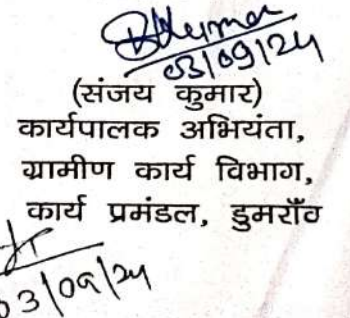 03/09/24
(संजय कुमार)
कार्यपालक अभियंता,
ग्रामीण कार्य विभाग,
कार्य प्रमंडल, डुमराँव
03/09/24